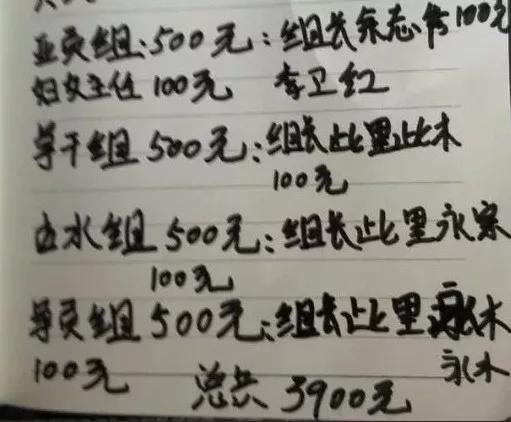 亚贡组:500元:组长余志伟100元
妇女主任100元 李卫红
学干组500元:组长比里比木
100元
古水组500元:组长比里永家
100元
学贡组500元:组长比里永木
100元 永木
总共3900元